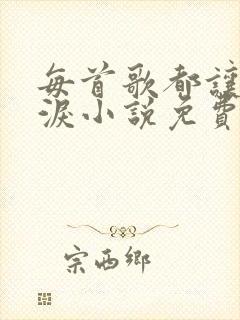 每首歌都讓
淚小說免費
宗西鄉